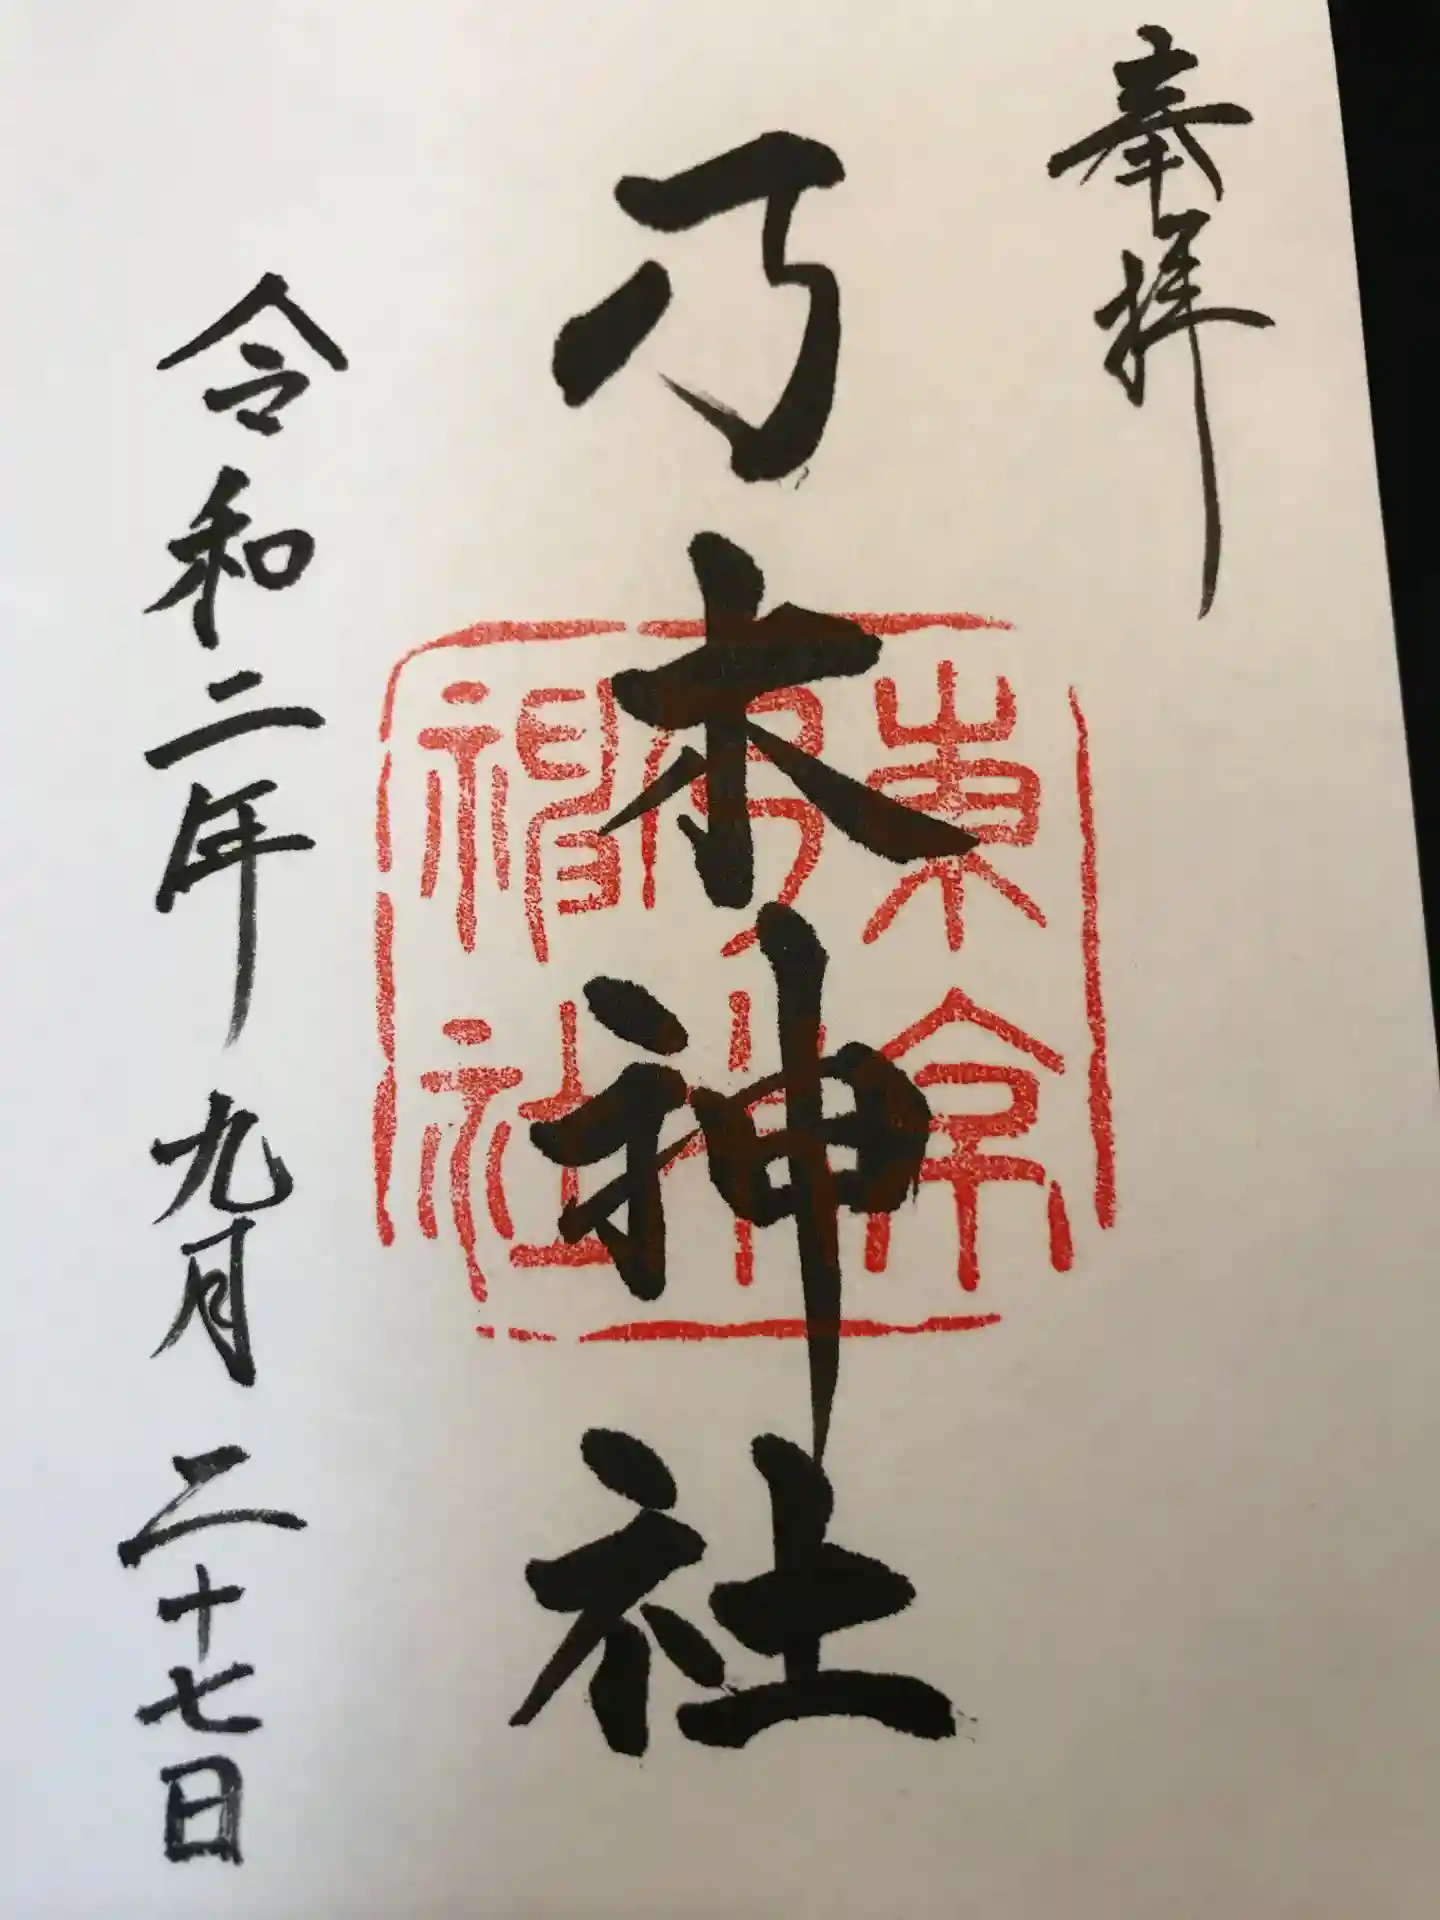 奉拝
乃木神社
東京
乃木
神社
令和二年九月二十七日